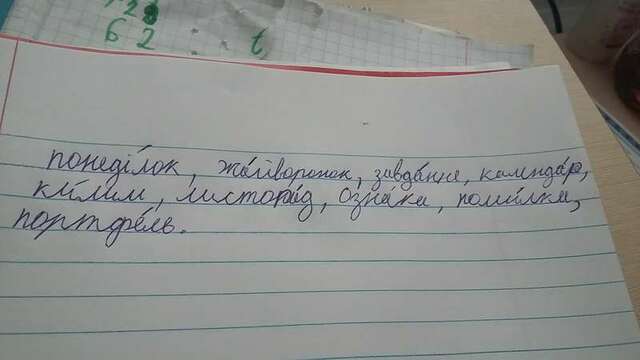 28
62 t
понеді́лок, жа́йворонок, завда́ння, календа́р,
ки́лим, листопа́д, ознака, поми́лка,
портфе́ль.